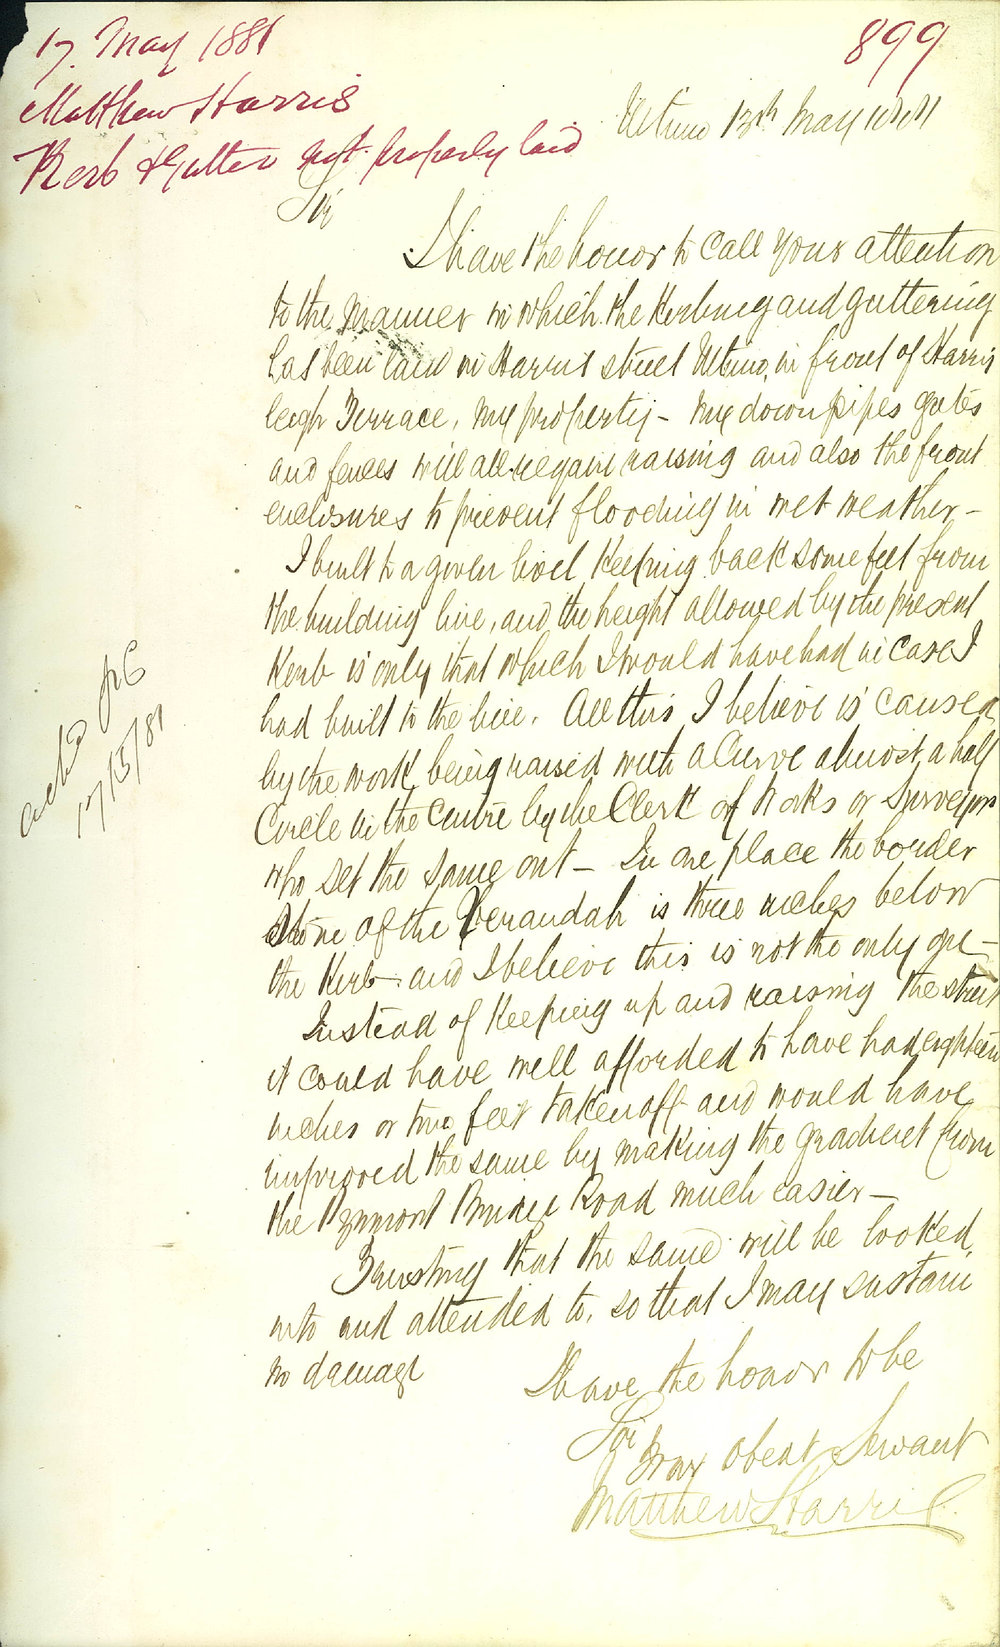 17. May 1881
899
Matthew Harris
Kerb & Gutter not properly laid
Ultimo 13th May 1881
Sir
I have the honor to call your attention
to the manner in which the Kerbing and guttering
has been laid in Harris street Ultimo, in front of Harris
leigh Terrace, my property - my down pipes gates
and fences will all require raising and also the front
enclosures to prevent flooding in wet weather -
I built to a given level keeping back some feet from
the building line, and the height allowed by the present
Kerb is only that which I would have had in case I
had built to the line. All this I believe is caused
by the work being raised with a Curve almost a half
Circle in the Centre by the Clerk of Works or Surveyor
who set the same out - In one place the border
stone of the Verandah is three inches below
the Kerb - and I believe this is not the only one -
Instead of Keeping up and raising the street
it could have well afforded to have had eighteen
inches or two feet taken off and would have
improved the same by making the gradient from
the Pyrmont Bridge Road much easier -
Trusting that the same will be looked
into and attended to, so that I may sustain
no damage
I have the honor to be
Sir
Your Obent Servant
Matthew Harris
17/5/81